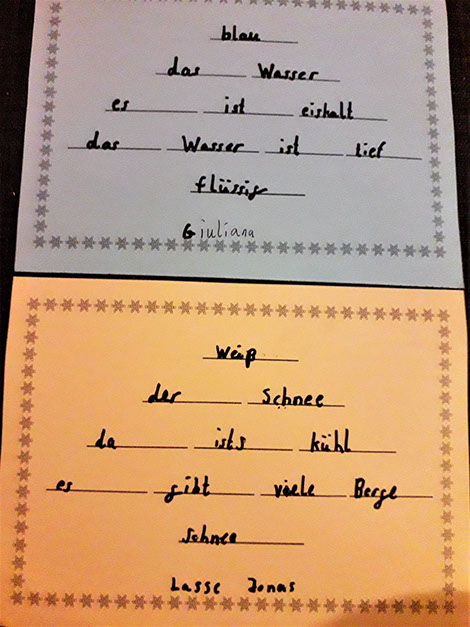 blau
das Wasser
es ist eiskalt
das Wasser ist tief
flüssig
Giuliana
Weiß
der Schnee
da ists kühl
es gibt viele Berge
Schnee
Lasse Jonas